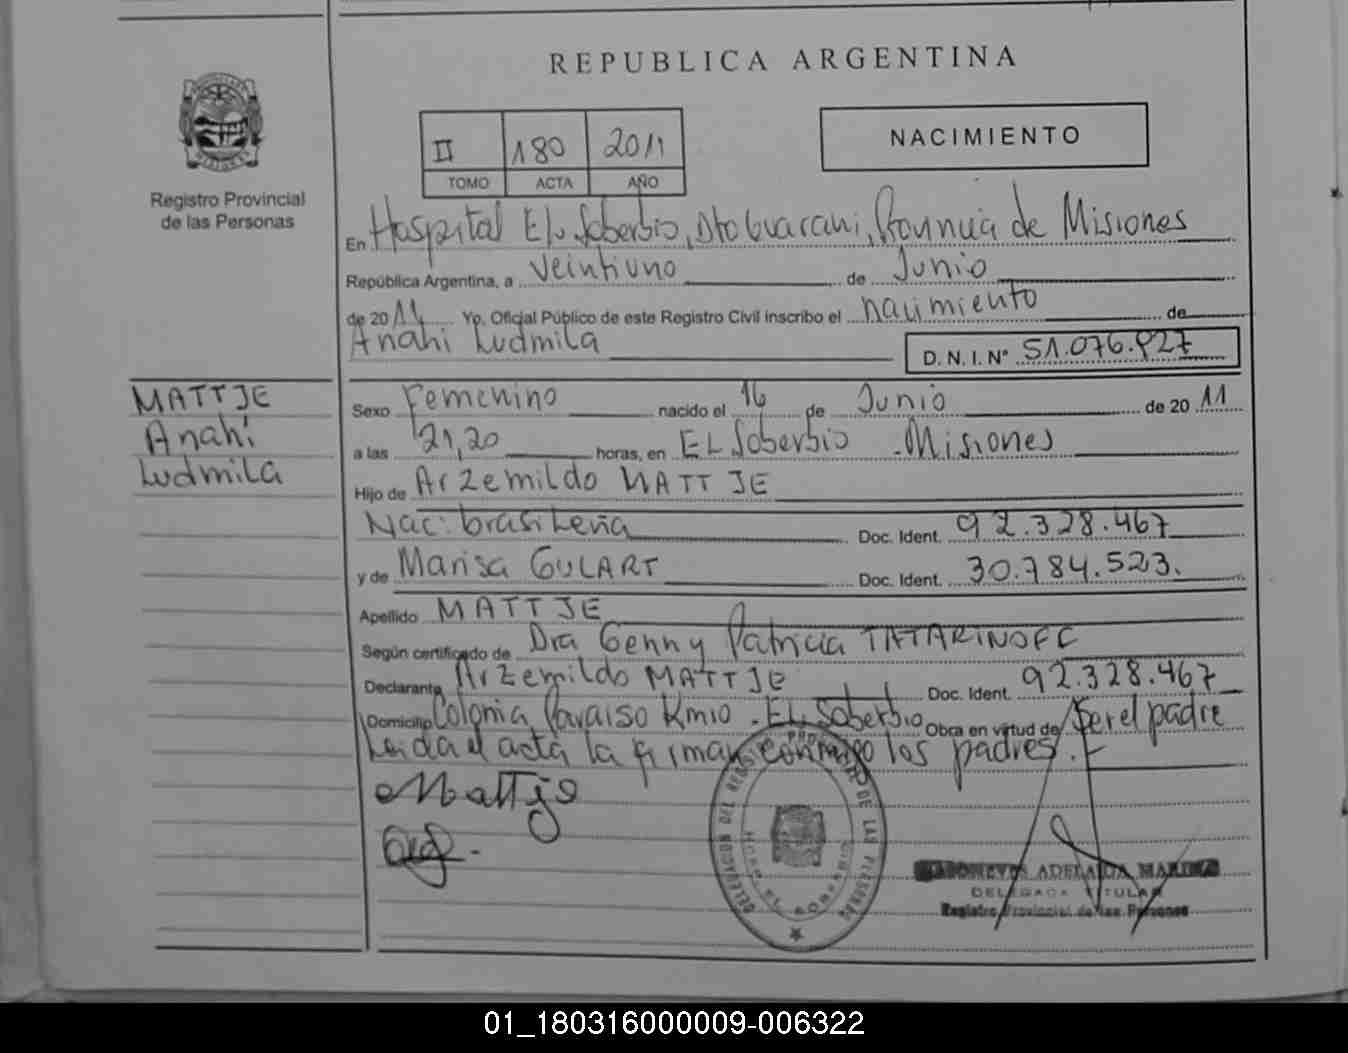 REPUBLICA ARGENTINA
II 180 2011
TOMO ACTA AÑO
NACIMIENTO
Registro Provincial
de las Personas
En Hospital El Soberbio, Dto Guarani, Provincia de Misiones
República Argentina, a veintiuno de Junio
de 2011 Yo, Oficial Público de este Registro Civil inscribo el nacimiento de
Anahi Ludmila
D. N. I. N° 51.076.927
MATTJE
Anahi
Ludmila
Sexo Femenino nacido el 16 de Junio de 2011
a las 21,20 horas, en EL Soberbio - Misiones
Hijo de Arzemildo MATTJE
Nac: brasileña Doc. Ident. 92.328.467
y de Marisa GULART Doc. Ident. 30.784.523.
Apellido MATTJE
Según certificado de Dra Genny Patricia TATARINOFF
Declarante Arzemildo MATTJE Doc. Ident. 92.328.467
Domicilio Colonia Paraiso Km10 - EL Soberbio Obra en virtud de Ser el padre
Leida el acta la firman conmigo los padres.
Mattje
DELEGACION DEL REGISTRO PROVINCIAL DE LAS PERSONAS
EL SOBERBIO
ADELAIDA MARINA
DELEGADA TITULAR
Registro Provincial de las Personas
01_180316000009-006322